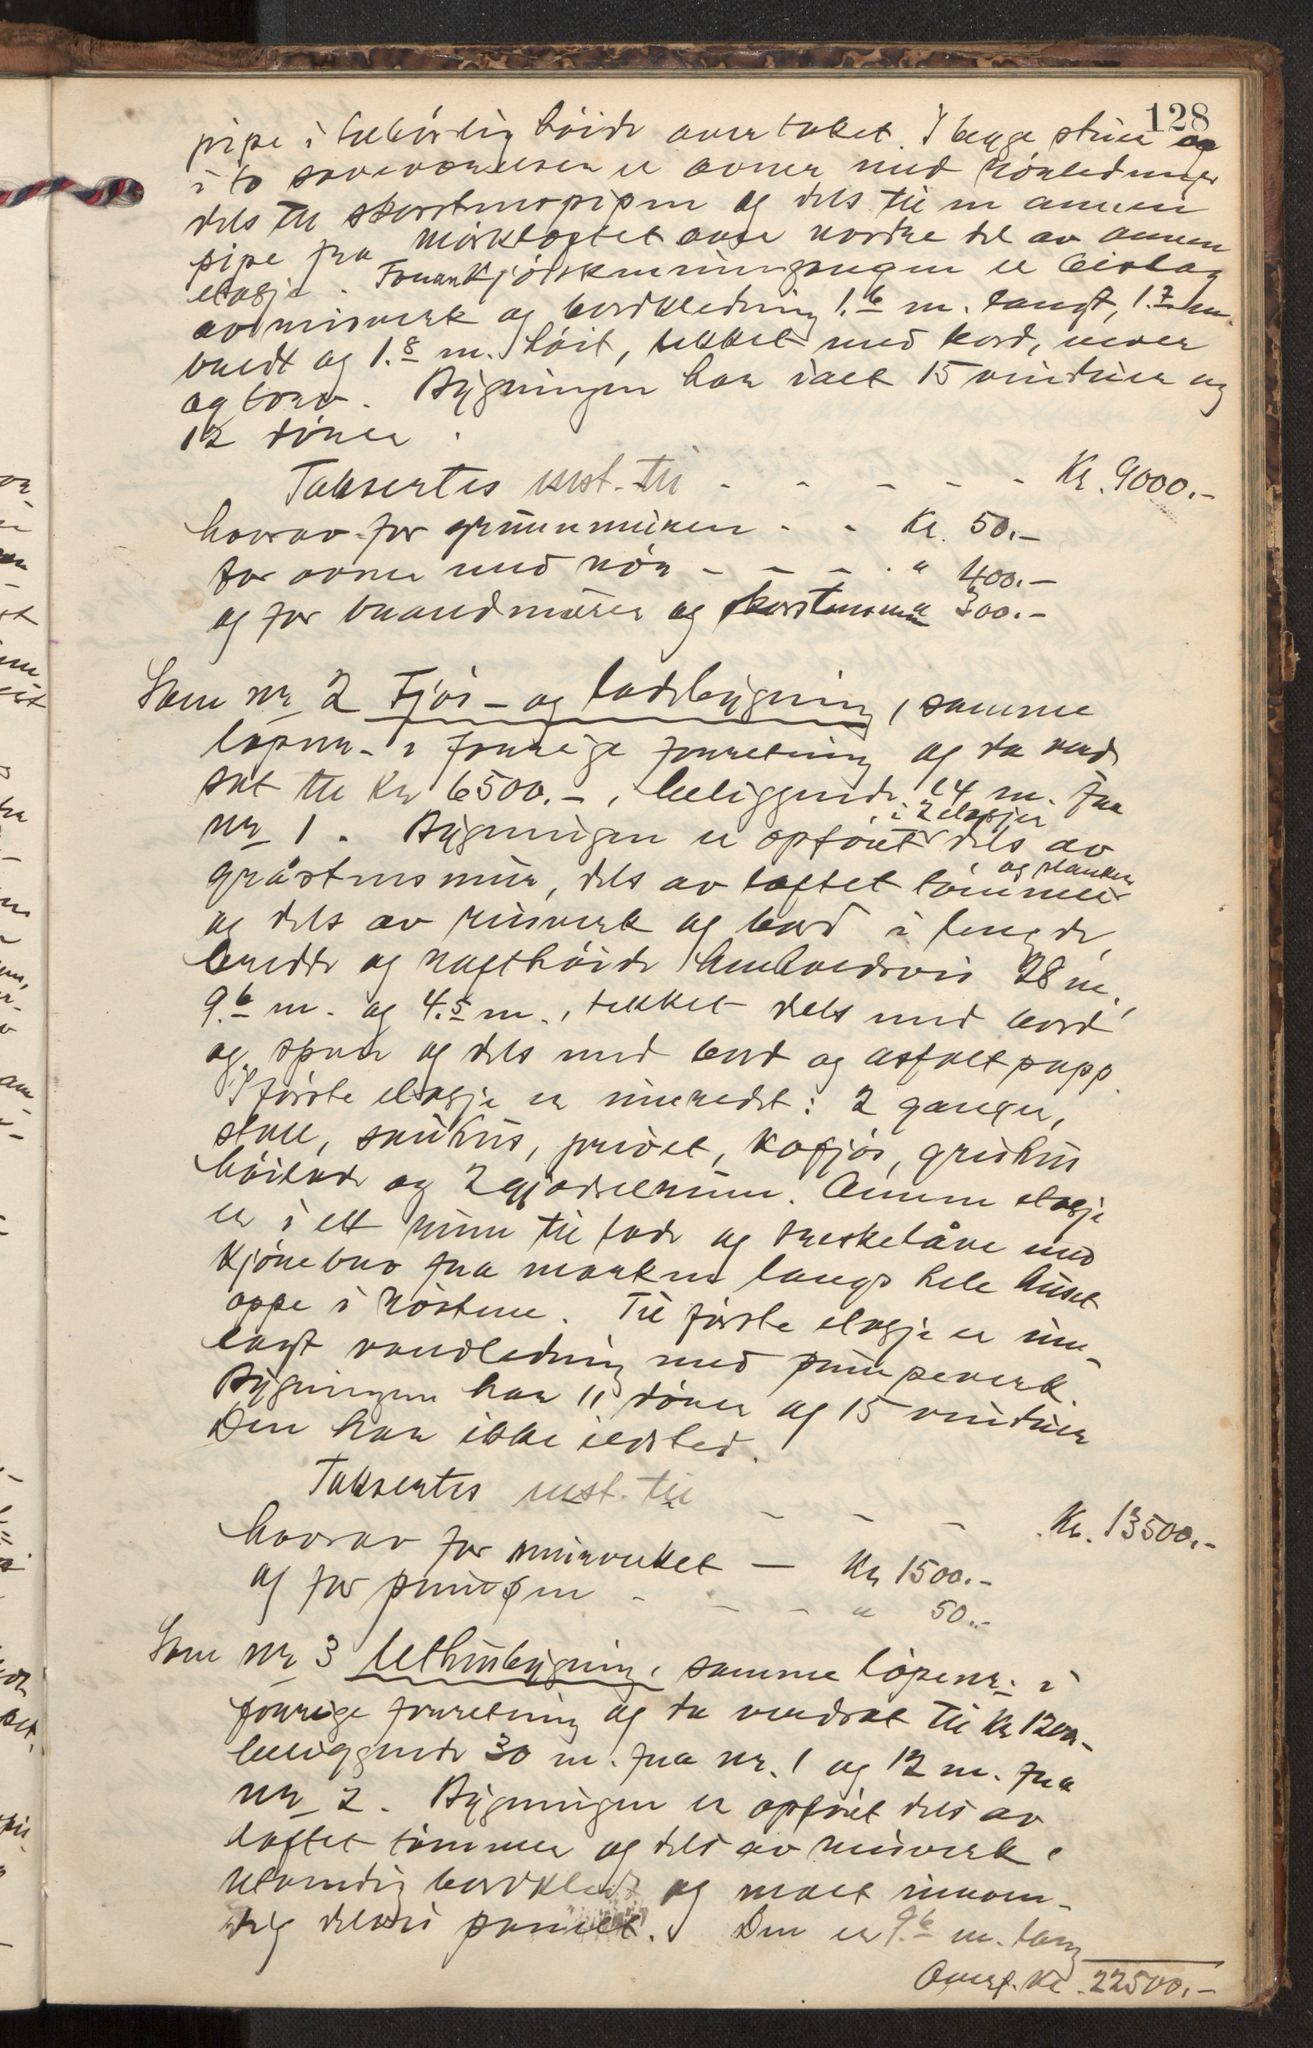 128
pipe i tilbörlig höide over taket. I begge stuer og
i to soveværelser er ovner med rörledninger
dels til skorstenspipen og dels til en annen
pipe fra mörkloftet over nordre del av annen
etasje. Foran kjökkeninngangen er bislag
av bindingsverk og bordkledning 1.6 m. langt, 1.7 m.
bredt og 1.8 m. höit, tekket med bord, never
og torv. Bygningen har ialt 15 vinduer og
12 dörer.
Takseres nest. til - - - - - Kr. 9000.-
hvorav for grunnmuren - - Kr. 50.-
for ovner med rör - - - - " 400.-
og for brandmurer og skorstenen " 300.-
Som nr 2 Fjös- og ladebygning, samme
löpenr. i forrige forretning og da verd-
sat til Kr 6500.-, beliggende 14 m. fra
nr 1. Bygningen er opfört i 2 etasjer dels av
gråstensmur, dels av laftet tömmer og planker
og dels av reisverk og bord i lengde,
bredde og rafthöide henholdsvis 28 m.,
9.6 m. og 4.5 m., tekket dels med bord
og spon og dels med bord og asfaltpapp.
I förste etasje er innredet: 2 ganger,
stall, sauhus, privet, kufjös, grishus
höilade og 2 gjödselrum. Annen etasje
er i ett rum til lade og treskelåve med
kjörebro fra marken langs hele huset
oppe i röstene. Til förste etasje er inn-
lagt vandledning med pumpeverk.
Bygningen har 11 dörer og 15 vinduer
Den har ikke ildsted.
Takseres nest. til - - - Kr. 13500.-
hvorav for murverket - Kr 1500.-
og for pumpen - - - - " 50.-
Som nr 3 Uthusbygning, samme löpenr. i
forrige forretning og da verdsat til Kr 1200.-
beliggende 30 m. fra nr. 1 og 12 m. fra
nr 2. Bygningen er opfört dels av
laftet tömmer og dels av reisverk,
utvendig bordkledt og malt innven-
dig delvis panelt. Den er 9.6 m. lang
Overf. Kr. 22500.-